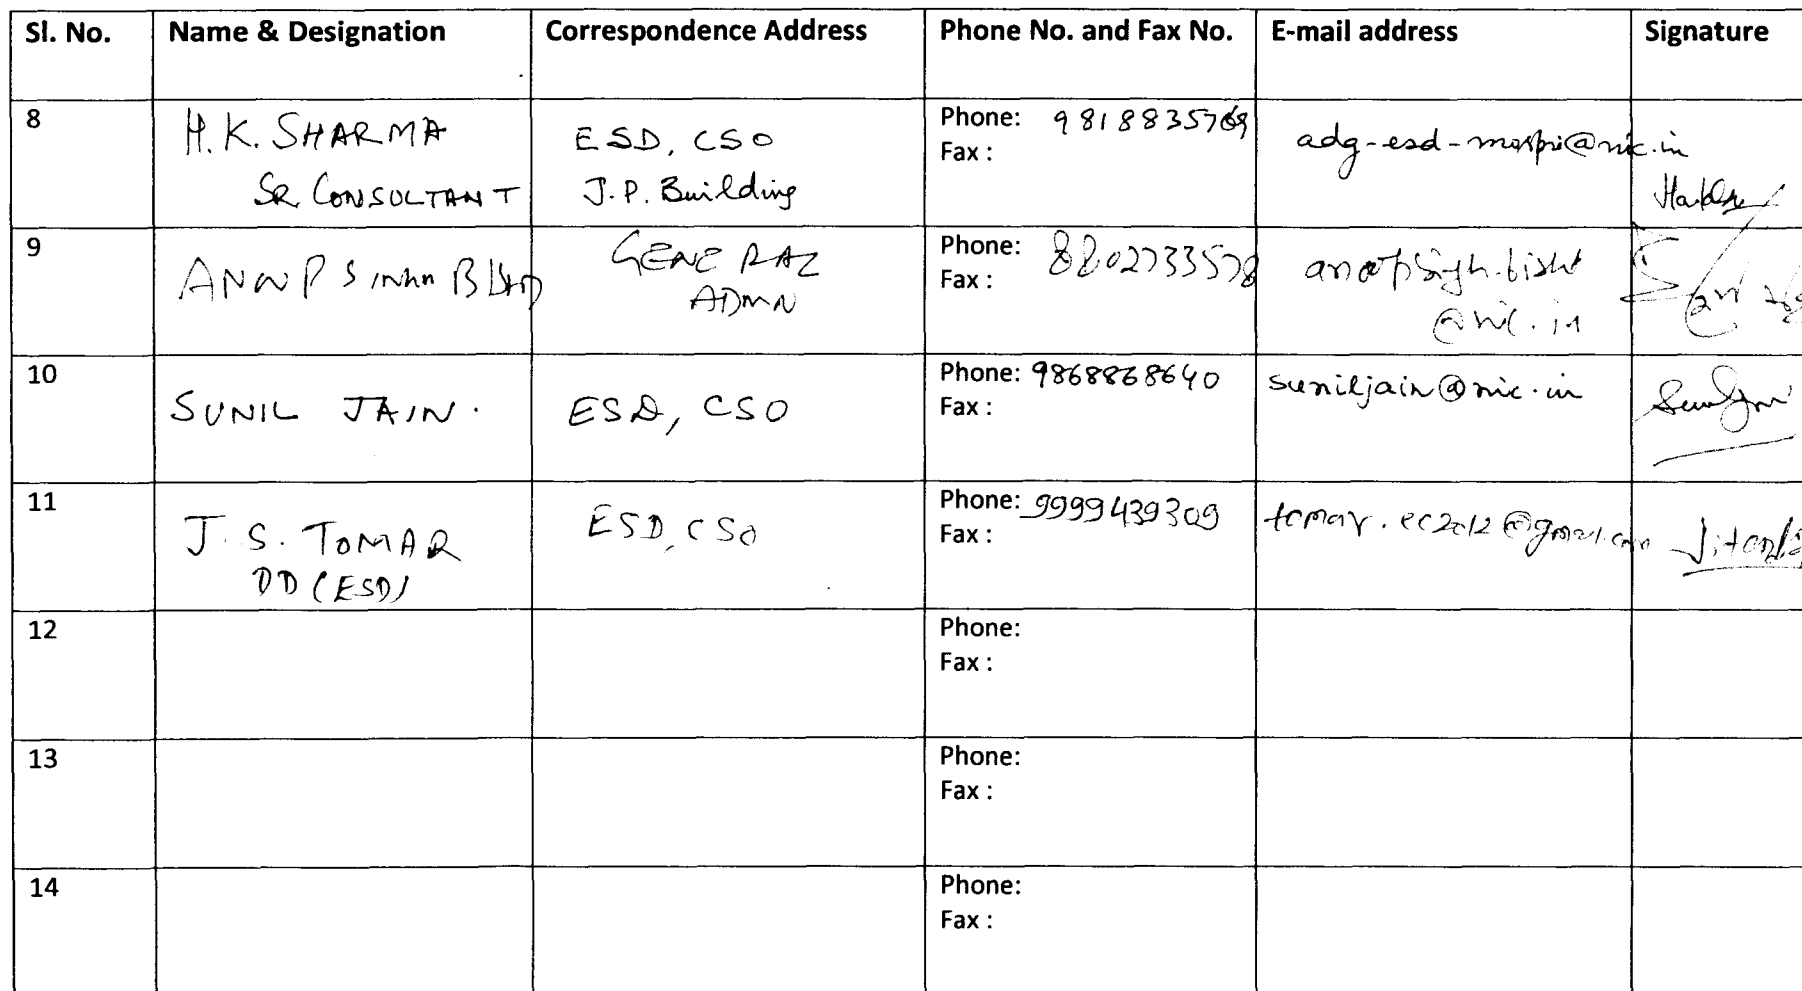 Sl. No. Name & Designation Correspondence Address Phone No. and Fax No. E-mail address Signature
8
H.K. SHARMA
SR. CONSULTANT
ESD, CSO
J.P. Building
Phone: 9818835769
Fax :
adg-esd-mospi@nic.in
9
GENERAL
ADMN
Phone: 8802733578
Fax :
anoopsingh.bisht
@nic.in
10
SUNIL JAIN.
ESD, CSO
Phone: 9868868640
Fax :
suniljain@nic.in
11
J. S. TOMAR
DD (ESD)
ESD, CSO
Phone: 9999439309
Fax :
tomar.ec2012@gmail.com
12
Phone:
Fax :
13
Phone:
Fax :
14
Phone:
Fax :